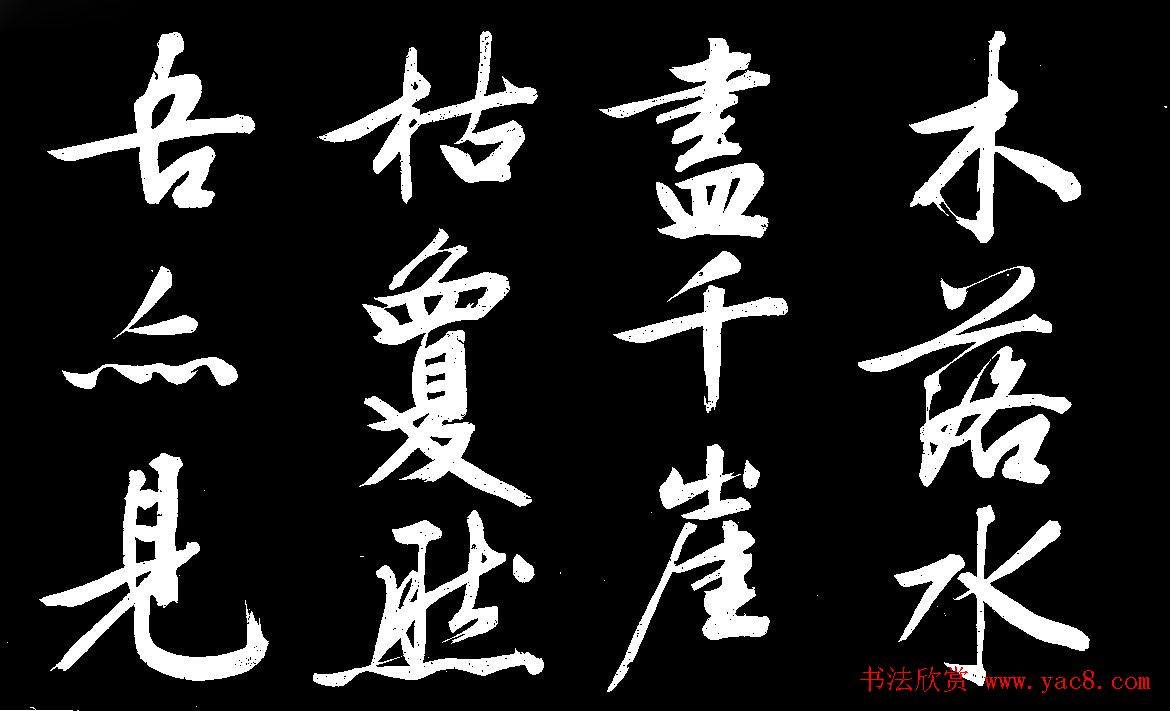 木落水
盡千崖
枯夐然
吾亦見
书法欣赏 www.yac8.com